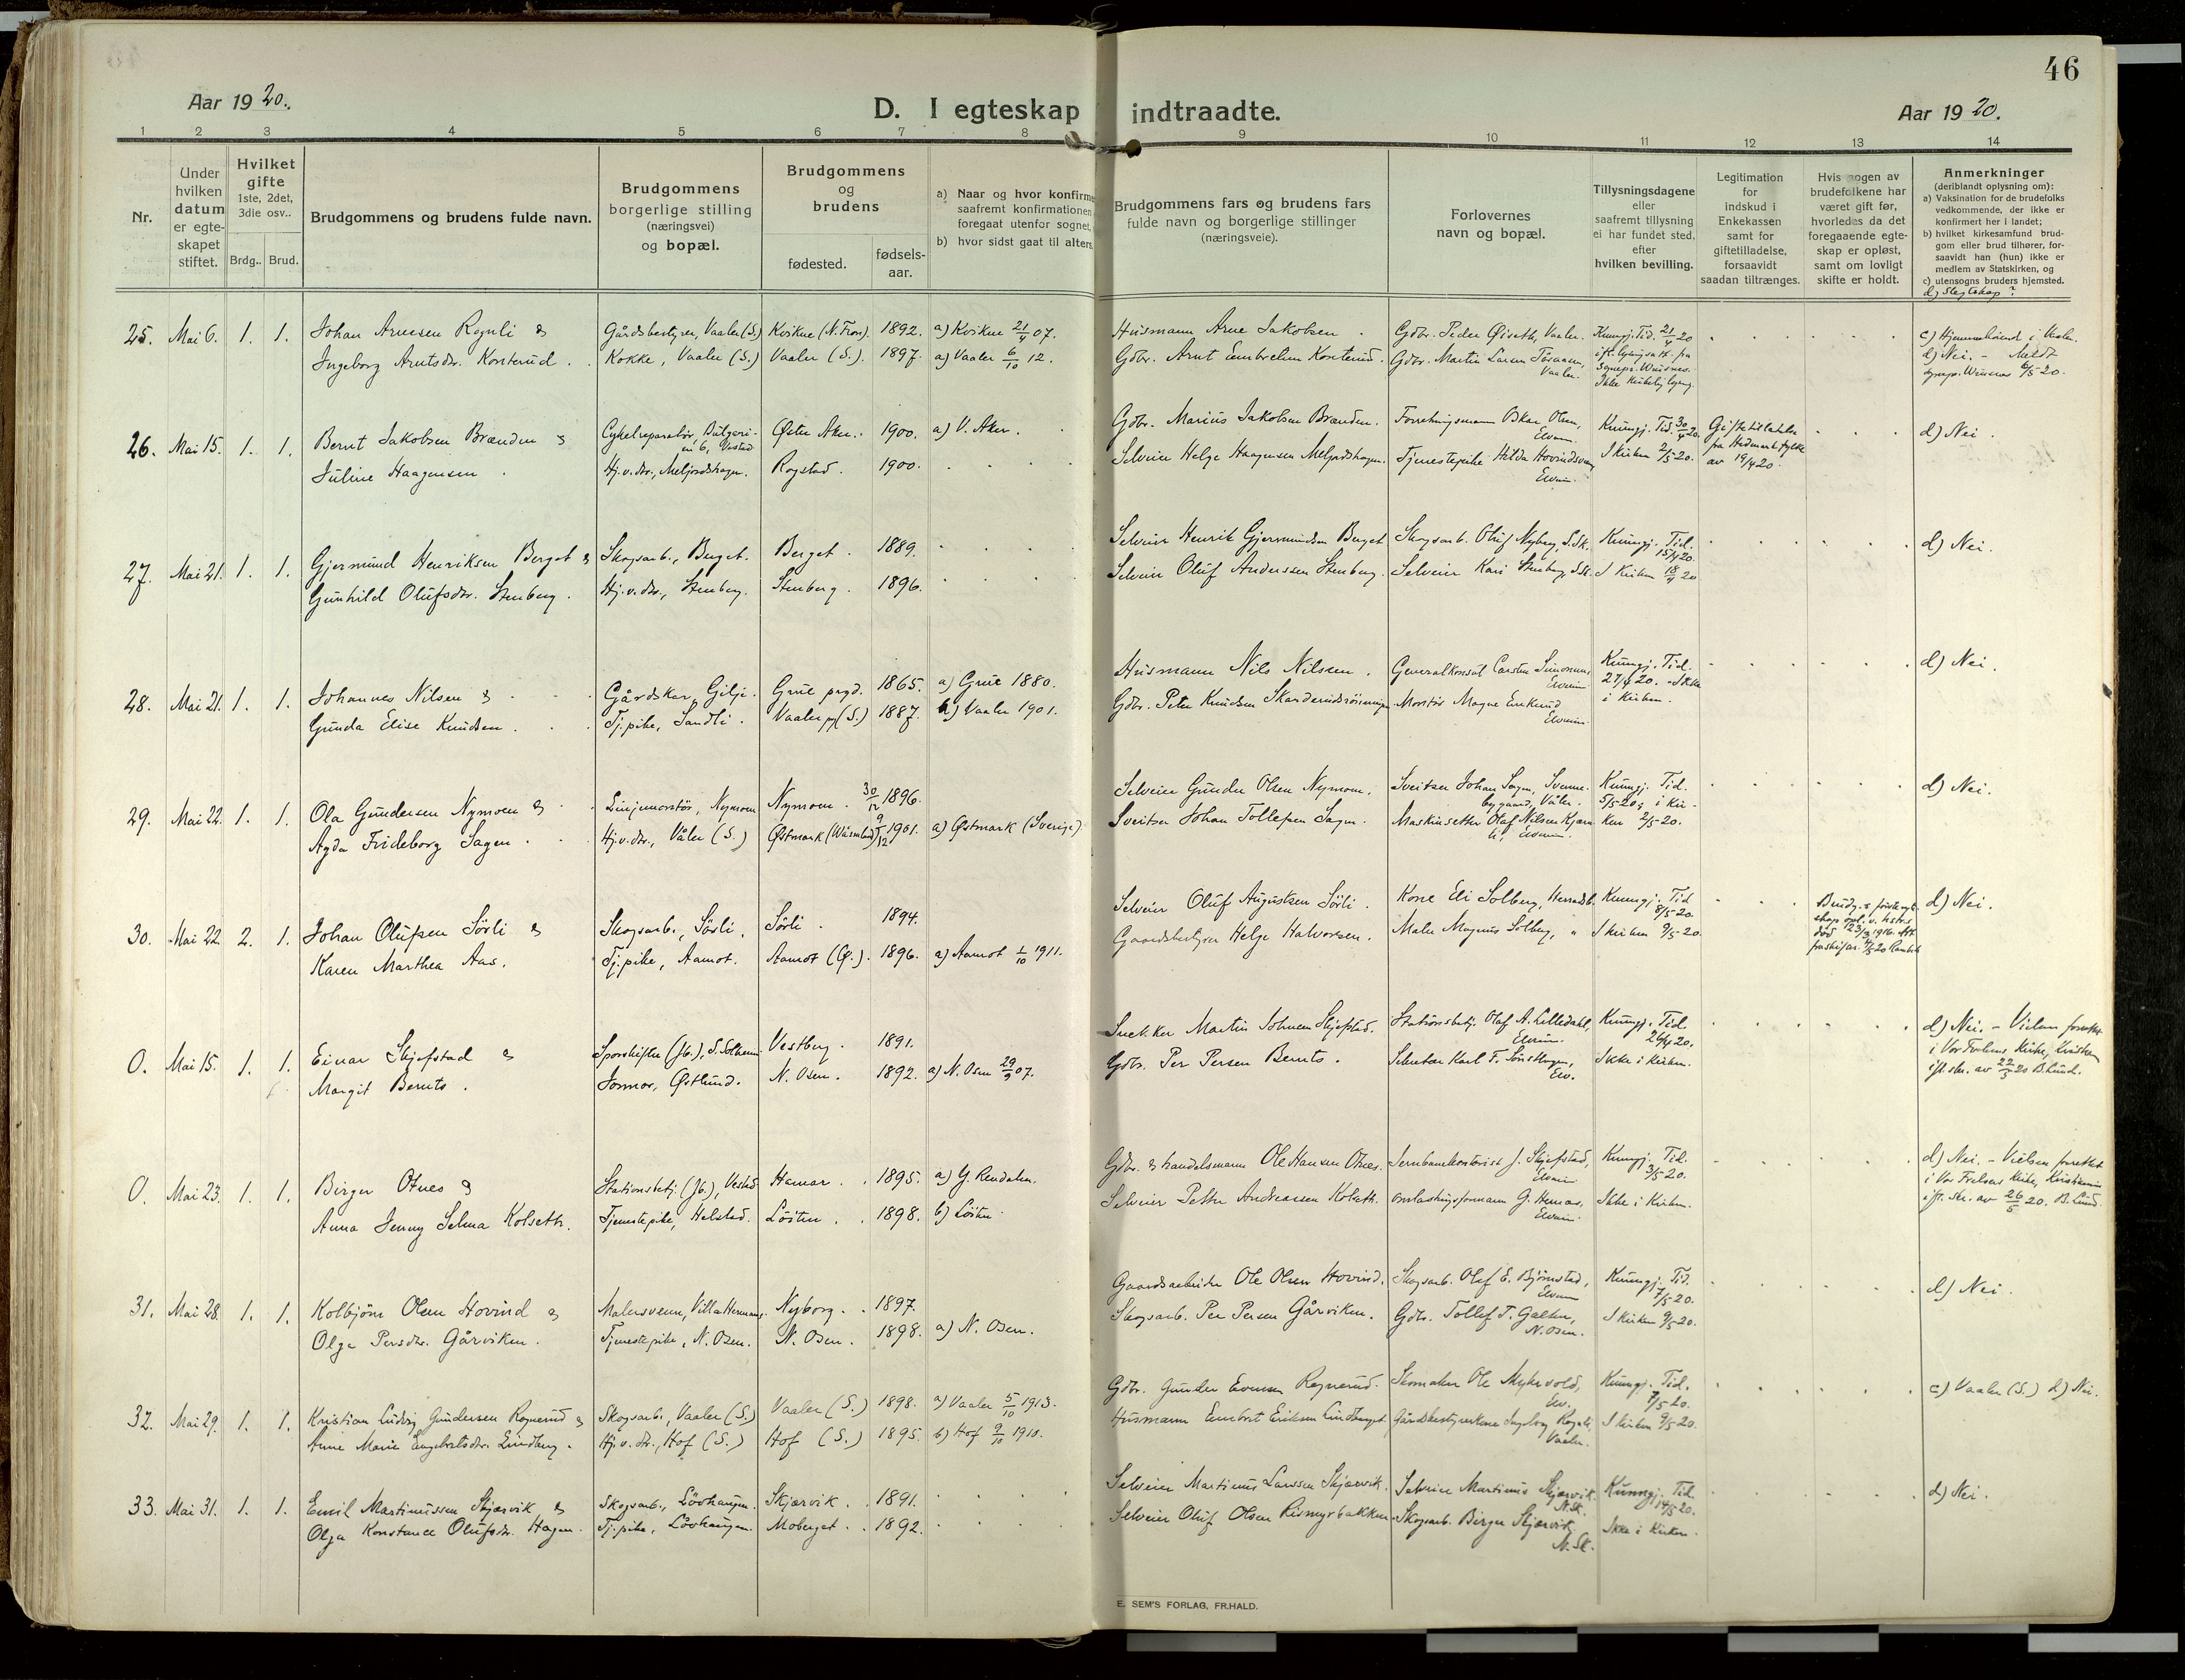 46
Aar 1920.
D. I egteskap indtraadte.
Aar 1920.
1 2 3 4 5 6 7 8 9 10 11 12 13 14
Nr.
Under hvilken datum er egteskapet stiftet.
Hvilket gifte 1ste, 2det, 3die osv..
Brdg.. Brud.
Brudgommens og brudens fulde navn.
Brudgommens borgerlige stilling (næringsvei) og bopæl.
Brudgommens og brudens
fødested.
fødsels-aar.
a) Naar og hvor konfirme
saafremt konfirmationen
foregaat utenfor sognet,
b) hvor sidst gaat til alters.
Brudgommens fars og brudens fars
fulde navn og borgerlige stillinger
(næringsveie).
Forlovernes
navn og bopæl.
Tillysningsdagene
eller
saafremt tillysning
ei har fundet sted,
efter
hvilken bevilling.
Legitimation
for
indskud i
Enkekassen
samt for
giftetilladelse,
forsaavidt
saadan tiltrænges.
Hvis nogen av
brudefolkene har
været gift før,
hvorledes da det
foregaaende egte-
skap er opløst,
samt om lovligt
skifte er holdt.
Anmerkninger
(deriblandt oplysning om):
a) Vaksination for de brudefolks
vedkommende, der ikke er
konfirmert her i landet;
b) hvilket kirkesamfund brud-
gom eller brud tilhører, for-
saavidt han (hun) ikke er
medlem av Statskirken, og
c) utensogns bruders hjemsted.
d) Slegtskap?
25. Mai 6. 1. 1. Johan Arnesen Rognli & Gårdsbestyrer, Vaaler (S.) Kvikne (N. Tron). 1892. a) Kvikne 21/4 07. Husmann Arne Jakobsen. Gdbr. Peder Øiseth, Vaaler. Kunngj. Tid. 21/4 20
Ingeborg Arntsdr. Konterud. Kokke, Vaaler (S.) Vaaler (S.). 1897. a) Vaaler 6/10 12. Gdbr. Arnt Embretsen Konterud. Gdbr. Martin Larsen
Vaaler.
d) Nei. - Meldt
26. Mai 15. 1. 1. Bernt Jakobsen Brænden & Cykelreparatør, Vestad Øster Aker. 1900. a) V. Aker. Gdbr. Marius Jakobsen Brænden. Forretningsmann Oskar Olsen, Elverum. Kunngj. Tid. 30/4 20. Giftetilladelse fra Hedmark fylke av 19/4 20. d) Nei.
Juline Haagensen. Hj. v. dr., Rogstad. 1900. Selveier Helge Haagensen Tjenestepike Hilda Elverum. I kirken 2/5 20.
27. Mai 21. 1. 1. Gjermund Henriksen Berget & Skogsarb., Berget. Berget. 1889. Selveier Henrik Gjermundsen Berget Skogsarb. Oluf Nyberg, S.Sk. Kunngj. Tid. 15/4 20. d) Nei.
Gunhild Olufsdr. Stenberg. Hj. v. dr., Stenberg. Stenberg. 1896. Selveier Oluf Anderssen Stenberg. Selveier Kari Stenberg, S.Sk. I Kirken 18/4 20
28. Mai 21. 1. 1. Johannes Nilsen & Gårdskar, Gilje. Grue prgd. 1865. a) Grue 1880. Husmann Nils Nilsen. Generalkonsul Carsten Simonsen, Elverum Kunngj. Tid. 27/4 20. Ikke d) Nei.
Gunda Elise Knudsen. Tj. pike, Sandli. Vaaler pg (S.) 1887. b) Vaaler 1901. Gdbr. Peter Knudsen Montør Magne Elverum. i kirken.
29. Mai 22. 1. 1. Ola Gundersen Nymoen & Linjemontør, Nymoen Nymoen. 30/12 1896. Selveier Gunder Olsen Nymoen. Sveitser Johan Sagen, Vaaler. Kunngj. Tid. 5/5 20, i kir- d) Nei.
Agda Frideborg Sagen. Hj. v. dr., Våler (S.) Østmark 9/12 1901. a) Østmark (Sverige) Sveitser Johan Tollefsen Sagen. Maskinsetter Olaf Nilsen Elverum. ken 2/5 20.
30. Mai 22. 2. 1. Johan Olufsen Sörli & Skogsarb., Sörli. Sörli. 1894. Selveier Oluf Augustsen Sörli. Kone Eli Solberg, Kunngj. Tid 8/5 20. d) Nei.
Karen Marthea Aas. Tj. pike, Aamot. Aamot (Ø.). 1896. a) Aamot 1/10 1911. Gaardsbestyrer Helge Halvorsen. Maler Magnus Solberg, " I kirken 9/5 20.
0. Mai 15. 1. 1. Einar Skjefstad & Vestberg. 1891. Snekker Martin Johnsen Skjefstad. Stationsbetj. Olaf A. Lilledahl, Elverum. Kunngj. Tid. 26/4 20. d) Nei. - Vielsen forrettet
Margit Bernts. Jonmor, Østlund. N. Osen. 1892. a) N. Osen 29/9 07. Gdbr. Per Persen Bernts. Elv. Ikke i kirken. i Vor Frelsers Kirke,
B. Lund.
0. Mai 23. 1. 1. Birger Otnes & Stationsbetj. (Jb.), Vestad Hamar. 1895. a) Y. Rendalen. Gdbr. & handelsmann Ole Hansen Otnes. Jernbanekontorist J. Skjefstad, Elverum Kunngj. Tid. 3/5 20. d) Nei. - Vielsen forrettet
Anna Jenny Selma Kolseth. Tjenestepike, Helstad. Löiten. 1898. b) Löiten. Selveier Petter Andreassen Kolseth. G. Hemar, Elverum. Ikke i kirken. i Vor Frelsers Kirke, Kristiania
ifl. skr. av 26/5 20. B. Lund.
31. Mai 28. 1. 1. Kolbjörn Olsen Hovind & Malersvenn, Villa Nyborg. 1897. Gaardsarbeider Ole Olsen Hovind. Skogsarb. Olaf E. Björnstad, Elverum Kunngj. Tid. 7/5 20. d) Nei.
Olga Persdtr. Gårviken. Tjenestepike, N. Osen. N. Osen. 1898. a) N. Osen. Skogsarb. Per Persen Gårviken. Gdbr. Tollef T. Galten, N. Osen. I kirken 9/5 20.
32. Mai 29. 1. 1. Kristian Ludvig Gundersen Rognerud & Skogsarb., Vaaler (S.) Vaaler (S.) 1898. a) Vaaler 5/10 1913. Gdbr. Gunder Evensen Rognerud. Skomaker Ole Elv. Kunngj. Tid. 7/5 20. c) Vaaler (S.) d) Nei.
Anne Marie Engebretsdr. Lindberg. Hj. v. dr., Hof (S.) Hof (S.) 1895. b) Hof 9/10 1910. Husmann Embret Eriksen Lindberget Gårdsbestyrerkone Ingeborg Rognli, Vaaler. I kirken 9/5 20.
33. Mai 31. 1. 1. Emil Martinussen Skjærvik & Skogsarb., Lövhaugen. Skjærvik. 1891. Selveier Martinus Larssen Skjærvik. Selveier Martinus Skjærvik. N.Sk. Kunngj. Tid. 14/5 20. d) Nei.
Olga Konstance Olufsdr. Hagen. Tj. pike, Lövhaugen. Moberget. 1892. Selveier Oluf Olsen Rismyrbakken Skogsarb. Birger Skjærvik, N. Sk. Ikke i kirken.
E. SEM'S FORLAG, FR.HALD.